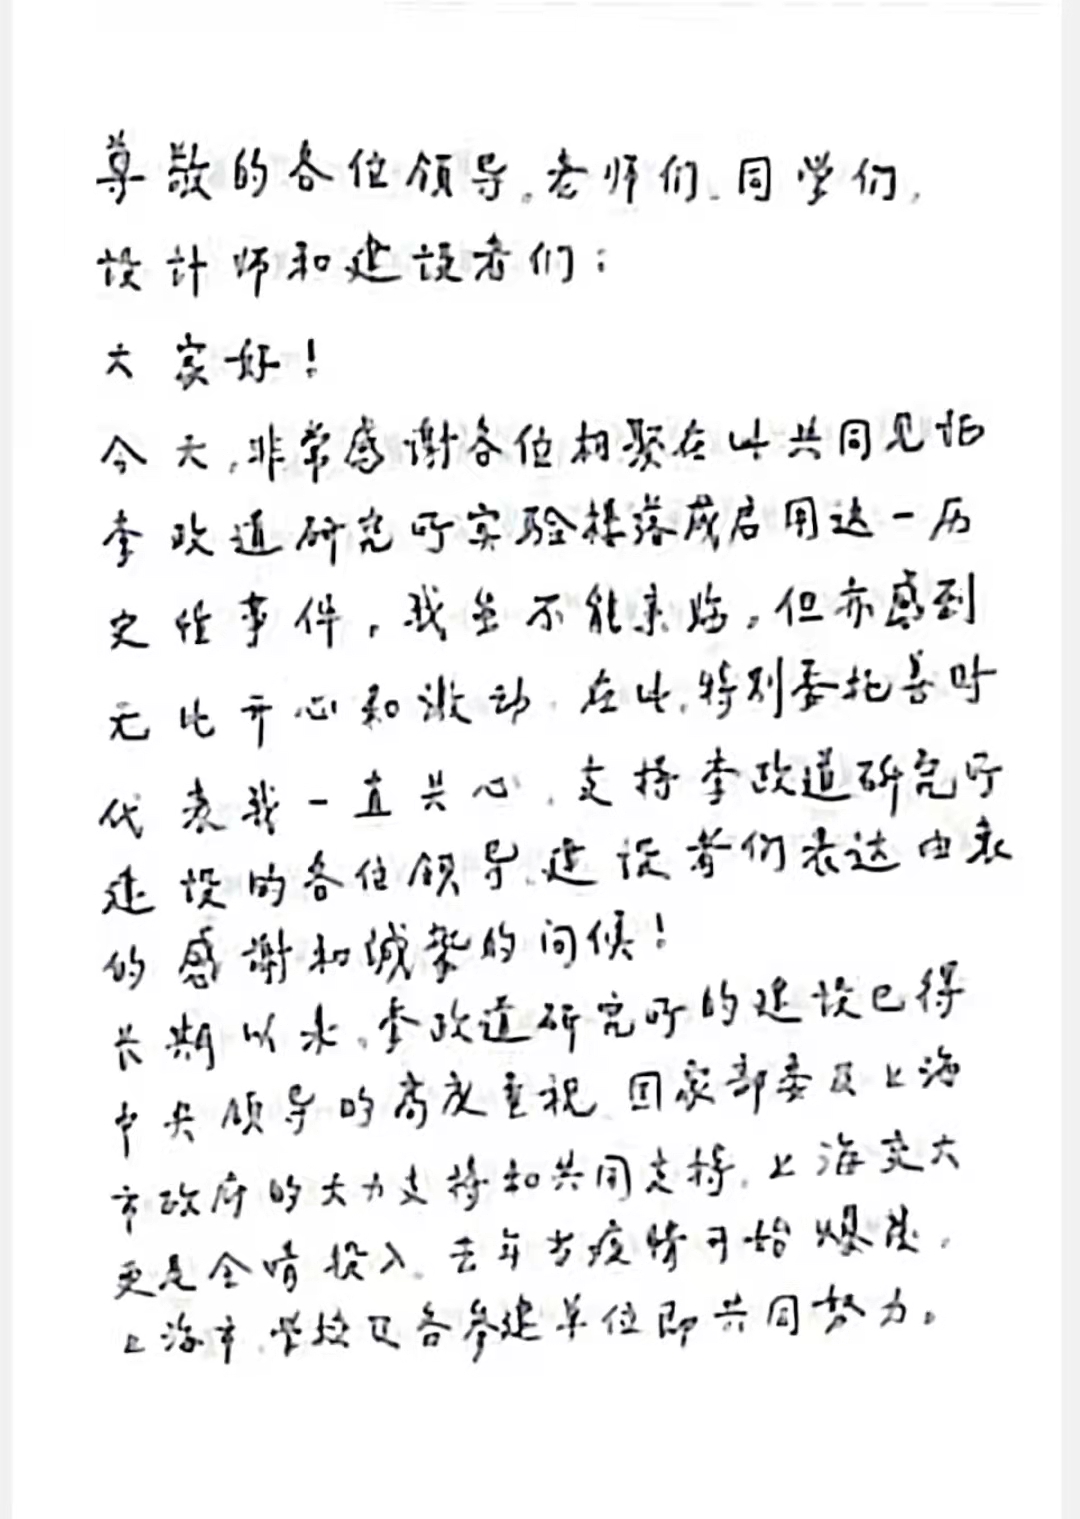 尊敬的各位领导、老师们、同学们,
设计师和建设者们：
大家好！
今天,非常感谢各位相聚在此共同见证
李政道研究所实验楼落成启用这一历
史性事件,我虽不能来临,但亦感到
无比开心和激动.在此,特别委托善时
代表我一直关心、支持李政道研究所
建设的各位领导、建设者们表达由衷
的感谢和诚挚的问候！
长期以来,李政道研究所的建设已得
中央领导的高度重视、国家部委及上海
市政府的大力支持和共同支持,上海交大
更是全情投入.去年当疫情开始爆发,
上海市、学校及各参建单位即共同努力。